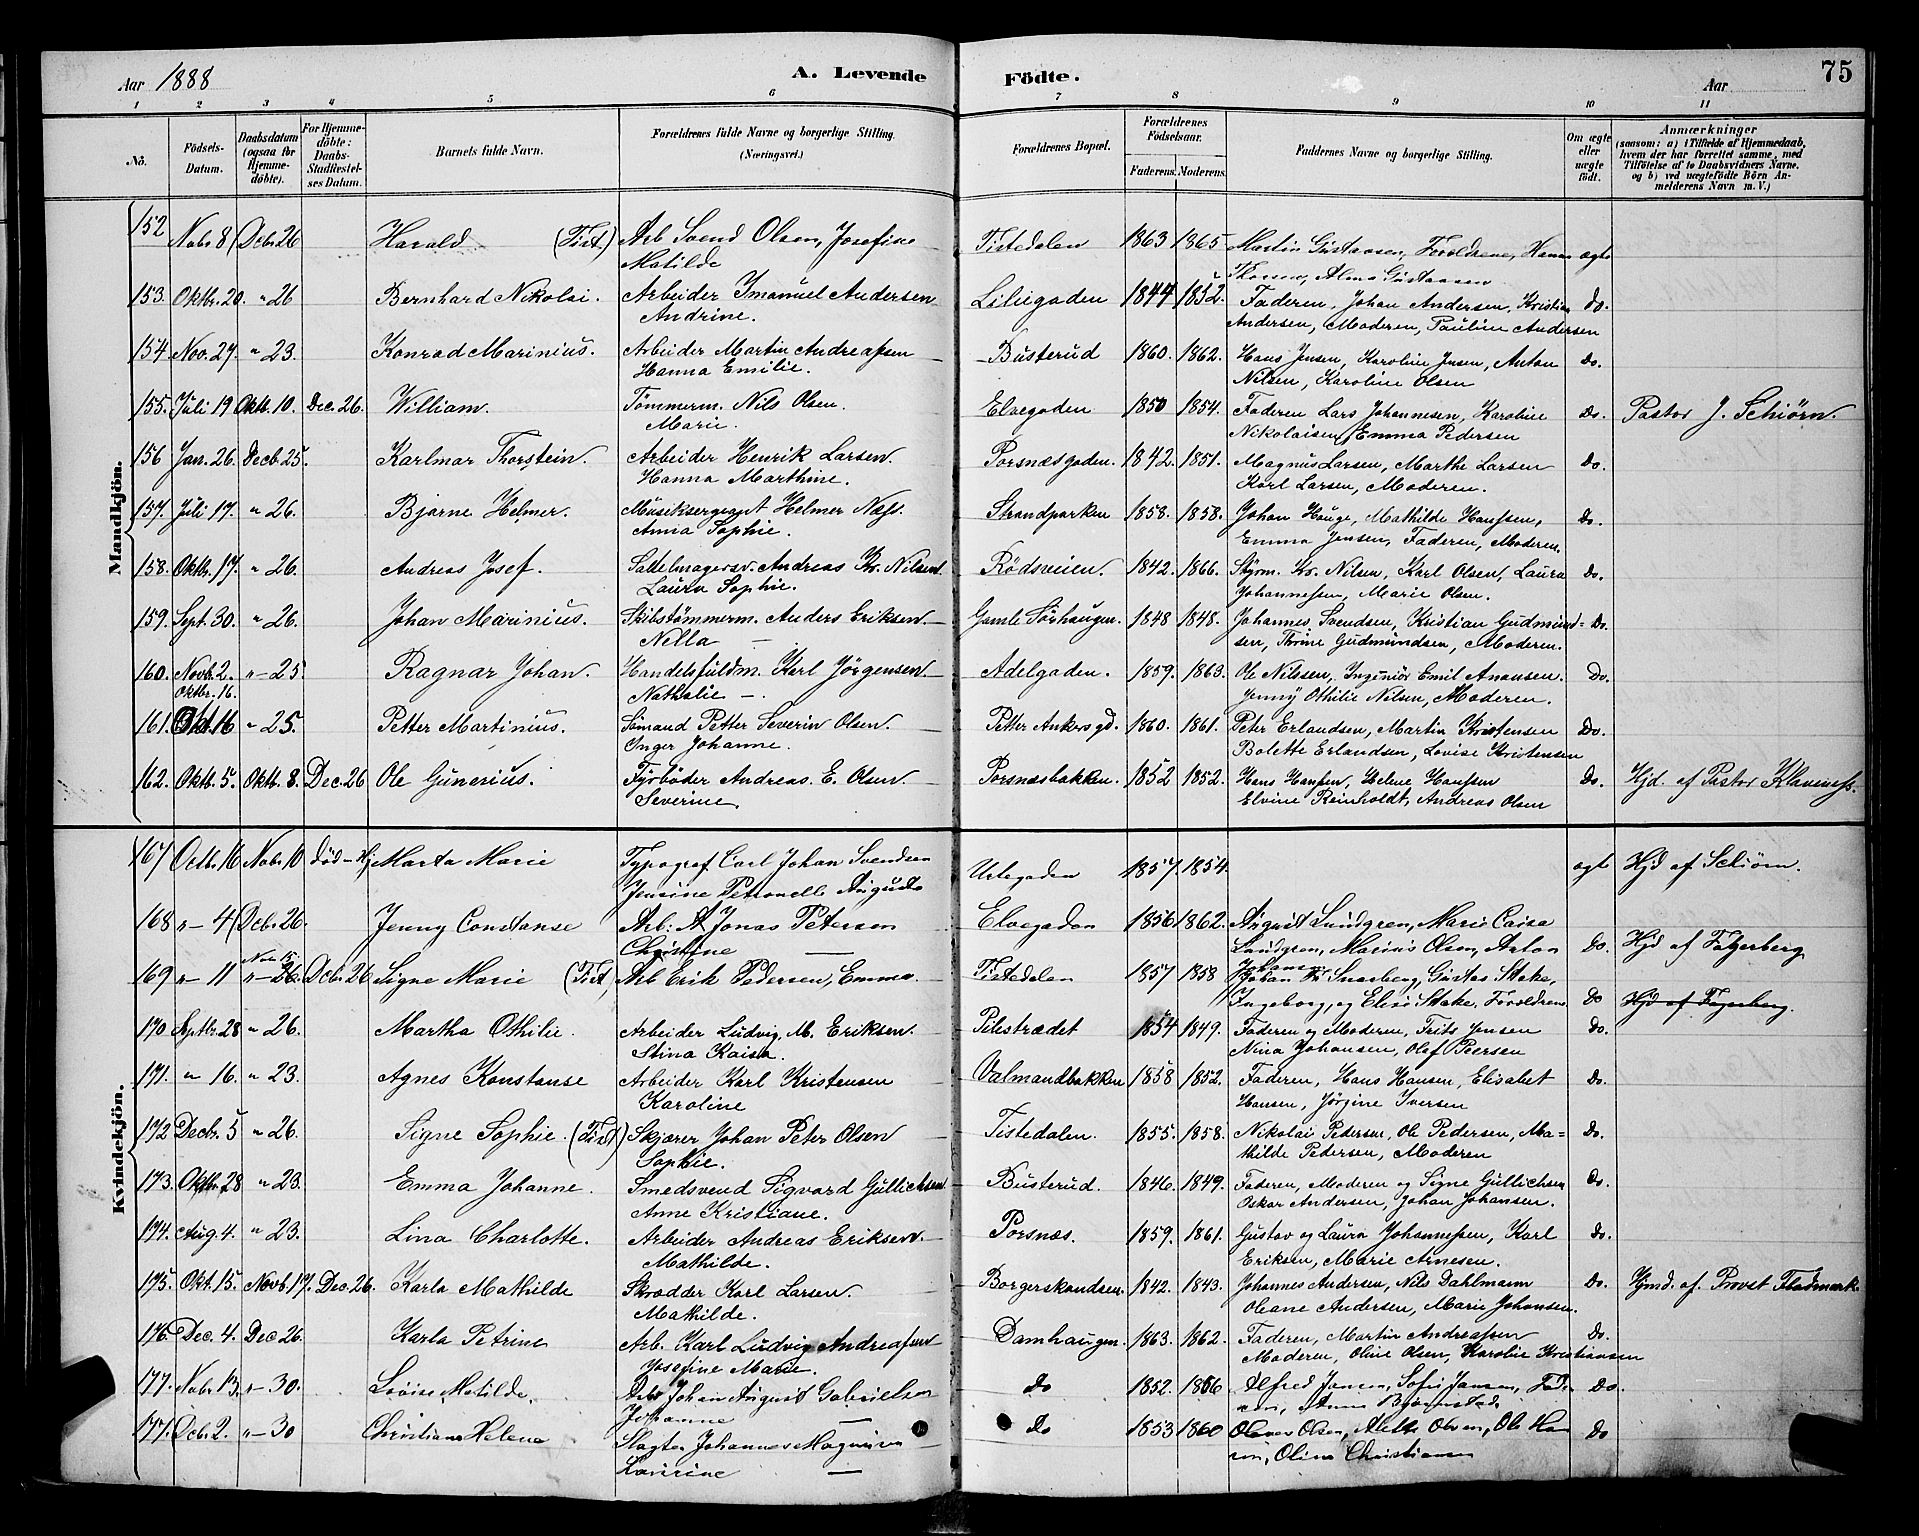 Aar 1888
A. Levende Födte.
Aar
75
1 2 3 4 5 6 7 8 9 10 11
No. | Födsels-Datum. | Daabsdatum (ogsaa for Hjemme-döbte). | For Hjemme-döbte: Daabs-Stadfæstel-ses Datum. | Barnets fulde Navn. | Forældrenes fulde Navne og borgerlige Stilling. (Næringsvei.) | Forældrenes Bopæl. | Forældrenes Födselsaar. Faderens. Moderens. | Faddernes Navne og borgerlige Stilling. | Om ægte eller uægte födt. | Anmærkninger (saasom: a) i Tilfælde af Hjemmedaab, hvem der har forrettet samme, med Tilföielse af to Daabsvidners Navne, og b) ved uægtefödte Börn An-melderens Navn m. V.)
Mandkjön.
152 Nobr 8 Debr 26 Harald (Tist.) Arb Svend Olsen, Josefine Tistedalen 1863 1865 Martin Gustavsen, Foreldrene, Hanna ægte
Matilde Alma Gustavsen
153. Oktbr. 20. " 26 Bernhard Nikolai. Arbeider Imanuel Andersen Liliegaden 1844 1852. Faderen, Johan Andersen, Kristian Do.
Andrine. Andersen, Moderen, Pauline Andersen
154 Nov. 27 " 23. Konrad Marinius. Arbeider Martin Andreassen Busterud 1860. 1862. Hans Jensen, Karoline Jensen, Anton Do.
Hanna Emilie. Nilsen, Karoline Olsen
155. Juli 19 Oktb. 10. Dec. 26. William. Tömmerm. Nils Olsen. Elvegaden 1850 1854. Faderen Lars Johannesen, Karoline Do. Pastor J. Schiörn.
Marie. Nikolaisen, Emma Pedersen
156 Jan. 26. Decb. 25. Karlmar Thorstein. Arbeider Henrik Larsen. Porsnæsgaden. 1842. 1851. Magnus Larsen, Marthe Larsen Do.
Hanna Marthine. Karl Larsen, Moderen.
157. Juli 17. " 26. Bjarne Helmer. Musiksergeant Helmer Næss. Strandparken 1858. 1858. Johan Hauge, Mathilde Hanssen, Do.
Anna Sophie. Emma Jensen, Faderen, Moderen.
158. Oktbr. 17. " 26. Andreas Josef. Sadelmagersv. Andreas Kr. Nilsen. Rödsveien. 1842. 1866. Styrm. Kr. Nilsen, Karl Olsen, Laura Do.
Laura Sophie. Johannessen, Marie Olsen.
159. Sept. 30. " 26. Johan Marinius. Skibstømmerm. Anders Eriksen. Gamle Sörhaugen. 1848 1848. Johannes Svendsen, Kristian Gudmund- Do.
Nella — sen, Thrine Gudmundsen, Moderen.
160. Novb. 2. " 25 Ragnar Johan. Handelsfuldm. Karl Jörgensen Adelgaden. 1859. 1863. Ole Nilssen, Ingeniör Emil Anonsen. Do.
Oktbr. 16. Nathalie —. Jenny Othilie Nilsen, Moderen.
161. Okt. 16 " 25. Petter Martinius. Sömand Petter Severin Olsen. Petter Ankers gd. 1860. 1861. Peter Erlandsen, Martin Kristensen Do.
Inger Johanne. Bolette Erlandsen, Lovise Kristensen
162. Oktb. 5. Oktb. 8. Dec. 26 Ole Gunerius. Fyrböder Andreas E. Olsen. Porsnæsbakken. 1852 1852. Hans Hanssen, Helene Hanssen Do. Hjd. af Pastor Klaveness.
Severine Elvine Reinholdt, Andreas Olsen
Kvindekjön.
167 Octb. 16 Nobr. 10 död — Hj Marta Marie Typograf Carl Johan Svendsen Urtegaden 1857. 1854. ægt Hjd af Schiörn.
Jensine Petronelle Augusta
168 " 4 Debr. 26. Jenny Constanse Arb: A Jonas Peterson Elvegaden 1856 1862. August Lundgren, Marie Caisa Do. Hjd af Fagerberg
Christine — Lundgren, Marius Olsen, Anton
Nobr 15
169 " 11 " 26. Debr 26 Signe Marie (Tist) Arb Erik Pedersen, Emma Tistedalen 1857 1858 Johan Fr Snarberg, Gustav Stake, Do Hjd af Fagerberg.
Ingeborg, og Elise Stake, Foreldrene
170 Septbr. 28 " 26. Martha Othilie. Arbeider Ludvig M. Eriksen. Pilestrædet 1854 1849. Faderen og Moderen, Frits Jensen Do.
Stina Kaisa. Nina Johansen, Olaf Peersen
171. " 16. " 23. Agnes Konstanse Arbeider Karl Kristensen Valmandbakken 1858 1852. Faderen, Hans Hansen, Elisabet Do.
Karoline Hansen, Jørgine Iversen
172 Decbr. 5 " 26. Signe Sophie. (Tist) Skjærer Johan Peter Olsen Tistedalen. 1855. 1858. Nikolai Pedersen, Ole Pedersen, Ma- Do.
Sophie. thilde Pedersen, Moderen
173. Oktbr. 28 " 23. Emma Johanne. Smedsvend Sigvard Gullichsen Busterud. 1846. 1849. Faderen, Moderen og Signe Gullichsen Do.
Anne Kristiane. Oskar Andersen, Johan Johansen.
174. Aug. 4. " 23. Lina Charlotte. Arbeider Andreas Eriksen. Porsnæs. 1859. 1861. Gustav og Laura Johannessen, Karl Do.
Mathilde. Eriksen, Marie Arnesen.
175. Okt. 15. Novb. 17. Dec. 26. Karla Mathilde Skrædder Karl Larsen. Borgerskandsen. 1842. 1843. Johannes Andersen, Nils Dahlmann Do. Hjmd. af. Provst Fladmark
Mathilde. Oleane Andersen, Marie Johansen.
176. Dec. 4. Dec 26. Karla Petrine Arb. Karl Ludvig Andreassen Damhaugen. 1863. 1862. Faderen, Martin Andreassen Do.
Josefine Marie. Moderen, Oline Olsen, Karoline Kristiansen
177. Nobr. 13. " 30. Lovise Matilde. Arb Johan August Gabrielsen Do 1852. 1856 Alfred Jansen, Sofie Jansen, Fad- Do.
Johanne — ren, Anna
177. Debr. 2. " 30 Christiane Helene Slagter Johannes Magnussen Do 1853 1860 Oliver Olsen, Alette Olsen, Ole Han Do
Laurine — sen, Olina Christiansen